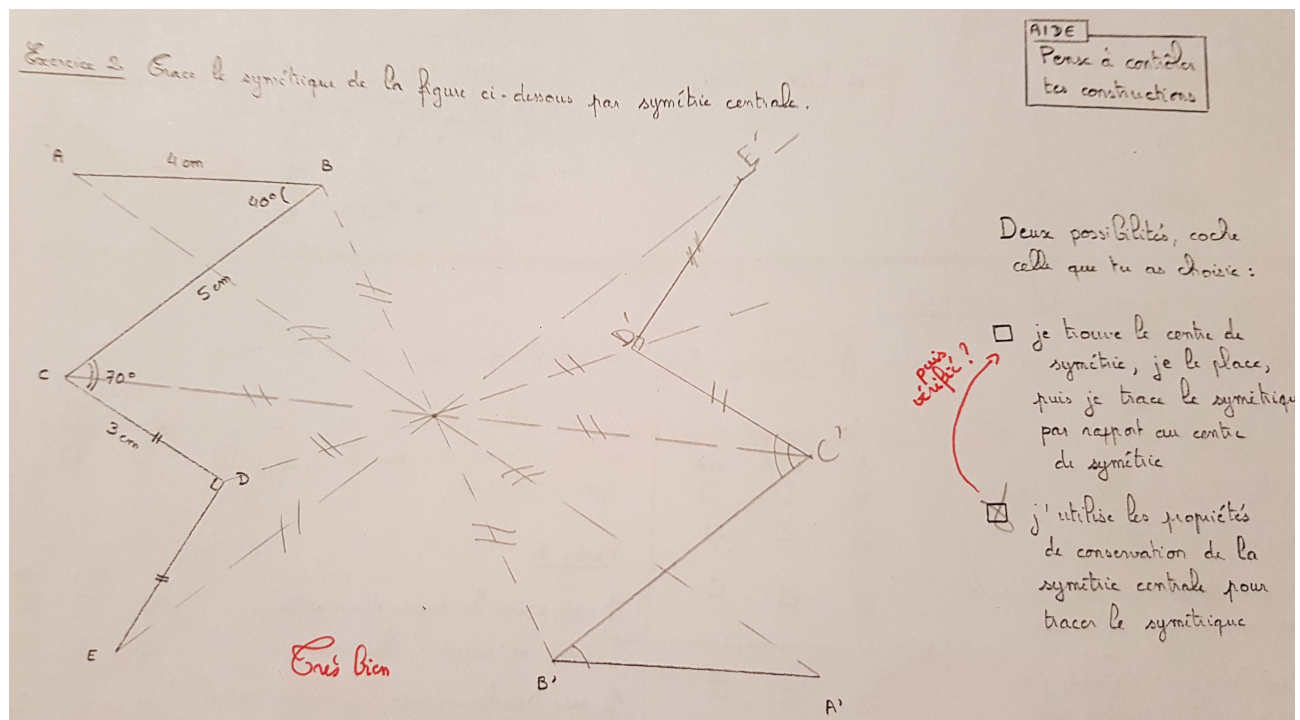 Exercice 2 Trace le symétrique de la figure ci-dessous par symétrie centrale.
AIDE
Pense à contrôler
tes constructions
A
4 cm
B
40°
5 cm
C
70°
3 cm
D
E
E'
D'
C'
B'
A'
Très bien
Deux possibilités, coche
celle que tu as choisie :
je trouve le centre de
symétrie, je le place,
puis je trace le symétrique
par rapport au centre
de symétrie
puis
vérifié ?
j'utilise les propriétés
de conservation de la
symétrie centrale pour
tracer le symétrique